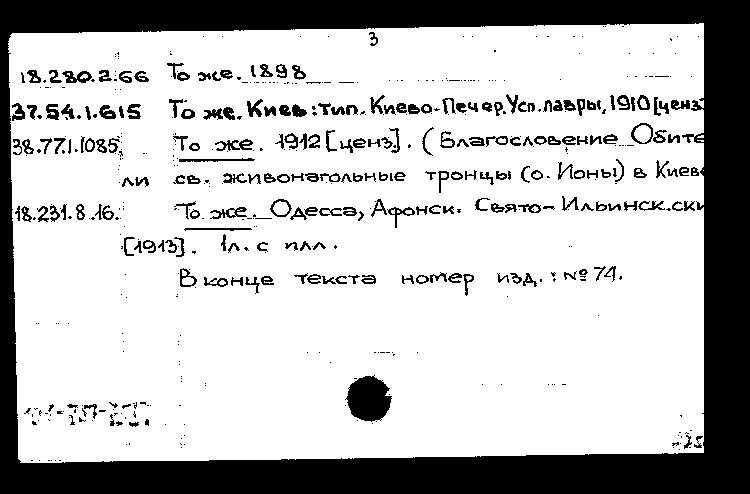 3
18.280.2.66 То же. 1898
37.54.1.615 То же. Киев: тип. Киево-Печер. Усп. лавры, 1910 [ценз]
38.77.1.1085. То же. 1912 [ценз]. (Благословение Обите
ли св. живонагольные тронцы (о. Ионы) в Киеве
18.231.8.16. То же. Одесса, Афонск. Свято-Ильинск.ски
[1913]. 1л. с илл.
В конце текста номер изд.: № 74.